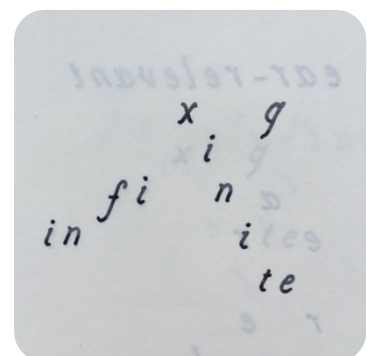 x g
i
fi n
in i
te